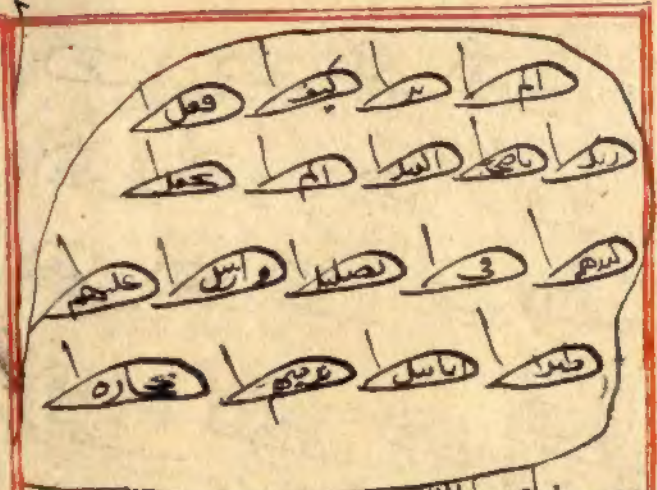 الم تر كيف فعل
ربك باصحب الفيل الم يجعل
كيدهم فى تضليل وارسل عليهم
طيرا ابابيل ترميهم بحجاره